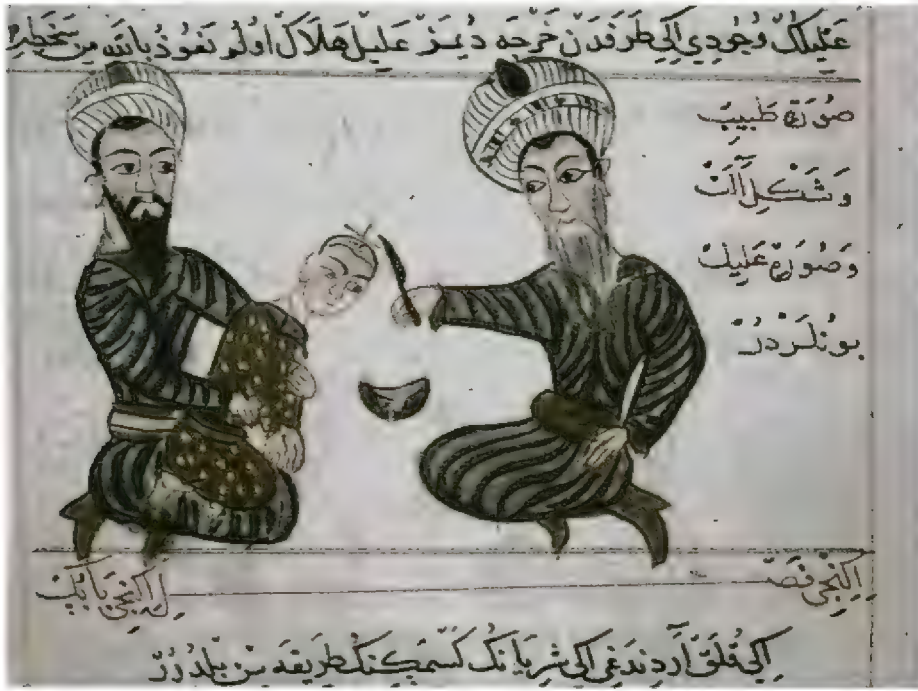 عَلِيلُكْ وُجُودِي اِكِي طَرَفْدَنْ خَرْجَه دُيَمَزْ عَلِيلْ هَلَاكْ اُولُو نَعُوذُ بِاللّٰهِ مِنْ سَخَطِهِ
صُورَةِ طَبِيبْ
وَشَكْلِ آلَتْ
وَصُورَةِ عَلِيلْ
بُونْلَرْدُرْ
اِيكِنْجِي فَصْلْ
اِيكِنْجِي بَابُكْ
اِكِي قُلَقْ آرْدِنْدَغِي اِكِي شِرْيَانُكْ كَسْمَكِنُكْ طَرِيقَه سِنْ بِلْدُرُرْ